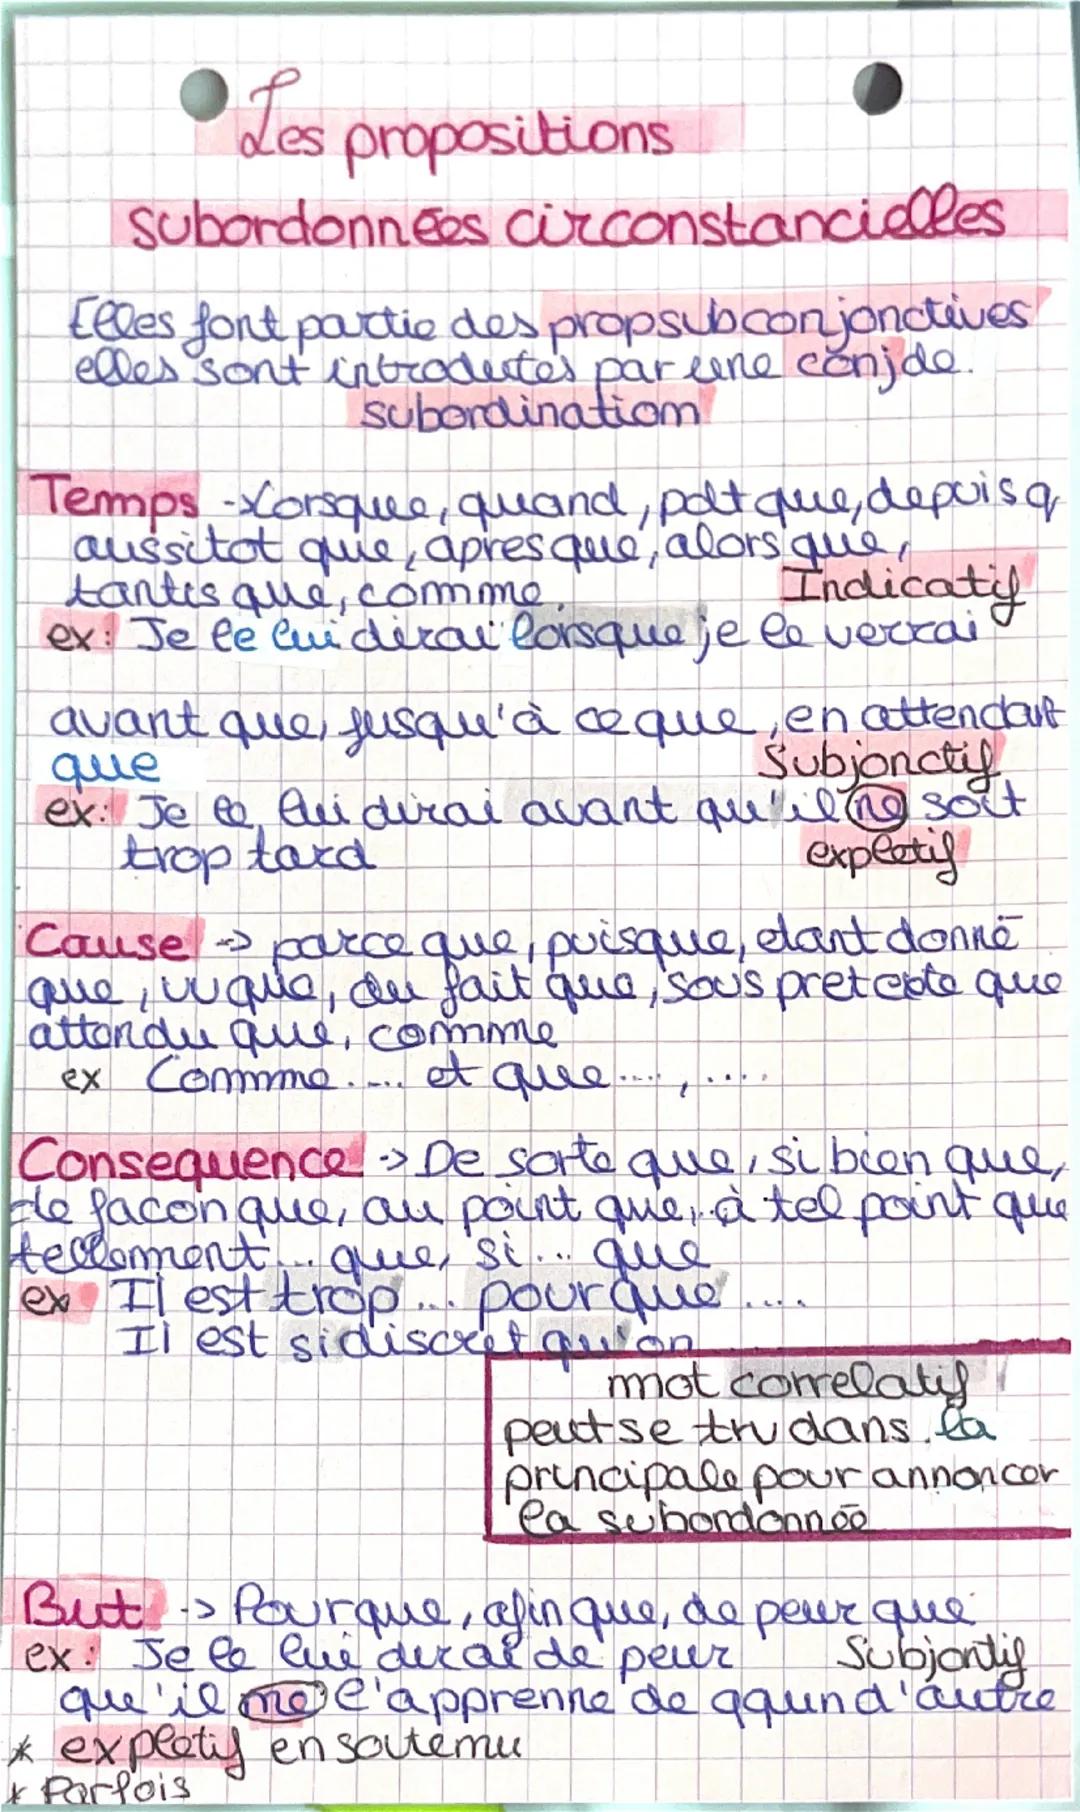 Les propositions
subordonnées circonstancielles
Elles font partie des propsubconjonctives
elles sont introduites par une conj de.
subordination
Temps -> Lorsque, quand, pdt que, depuis q
aussitot que, apres que, alors que,
tantis que, comme.
Indicatif
ex: Je le lui dirai lorsque je le verrai
avant que, jusqu'à ce que, en attendant
que
Subjonctif
ex: Je le lui dirai avant qu'il ne soit
trop tard
expletif
Cause -> parce que, puisque, etant donné
que, vu que, du fait que, sous pretexte que
attendu que, comme
ex Comme .... et que ...., ....
Consequence -> De sorte que, si bien que,
de façon que, au point que, à tel point que
tellement ... que, si ... que
ex Il est trop ... pour que ....
Il est si discret qu'on
mot correlatif
peut se trv dans la
principale pour annoncer
la subordonnée
But -> Pour que, afin que, de peur que
ex: Je le lui dirai de peur
Subjontif
qu'il ne l'apprenne de qqun d'autre
* expletif en soutenu
* Parfois